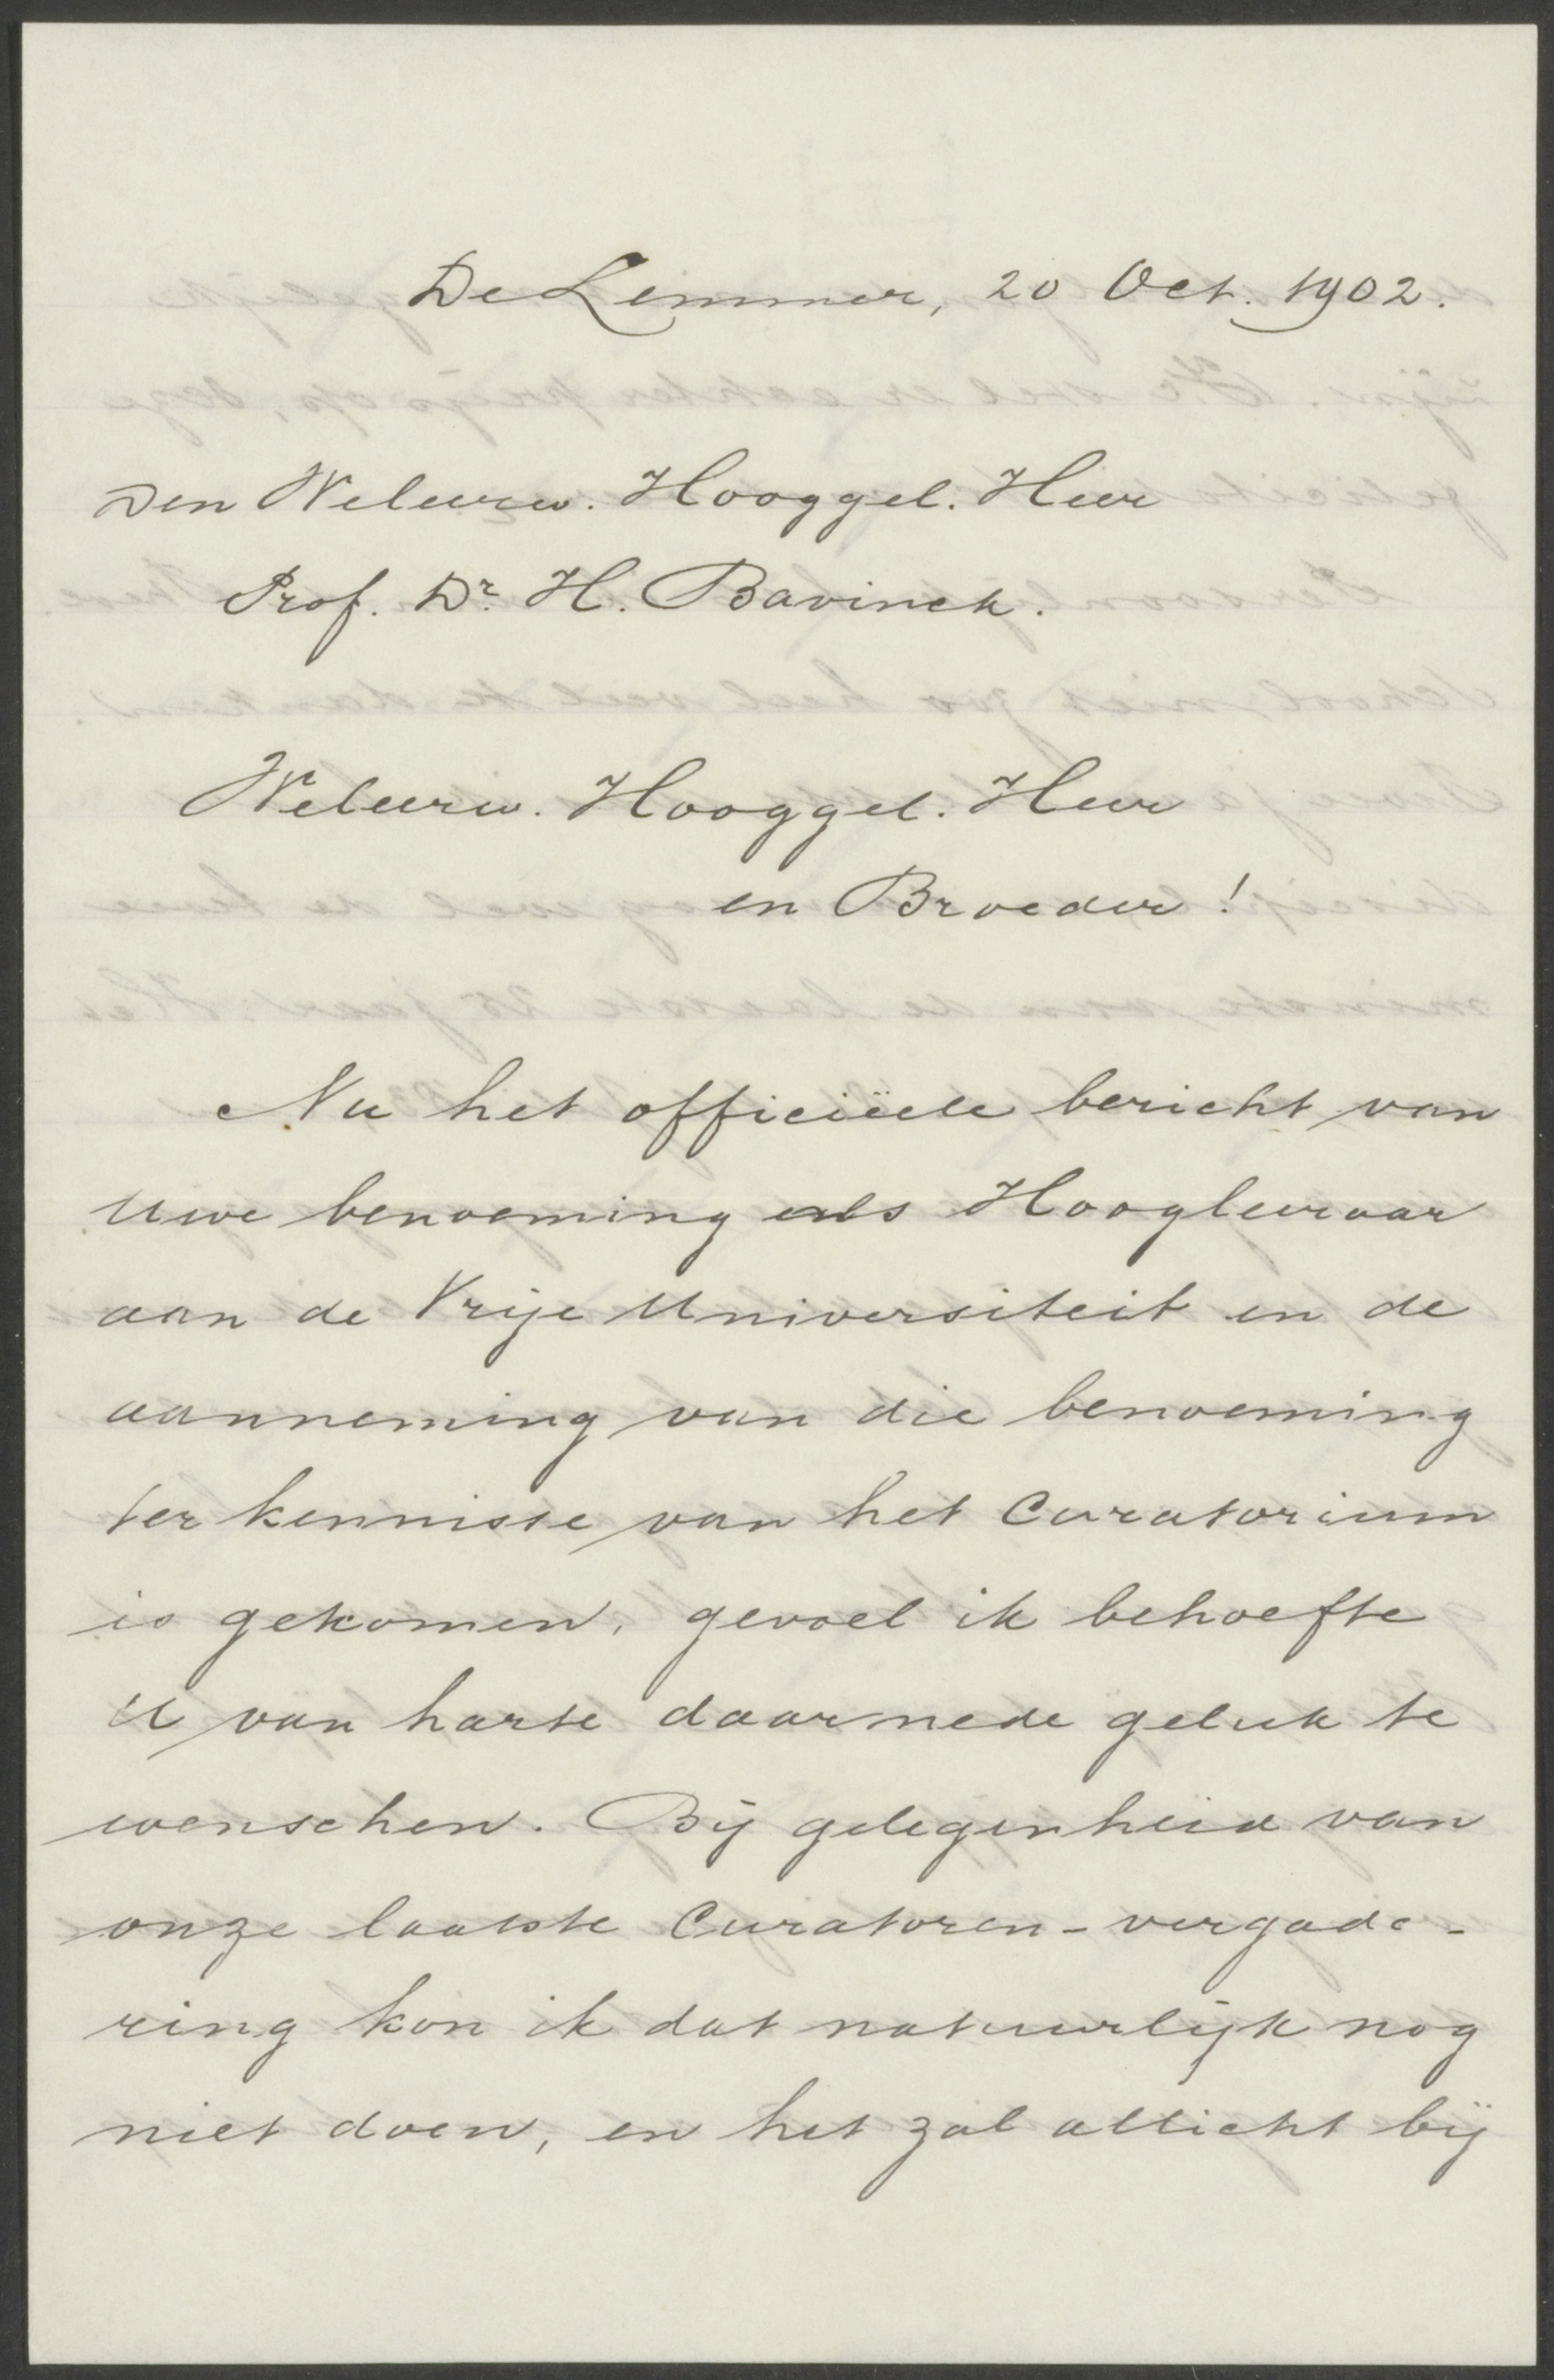 De Lemmer, 20 Oct. 1902.
Den Weleerw. Hooggel. Heer
Prof. Dr. H. Bavinck.
Weleerw. Hooggel. Heer
en Broeder!
Nu het officiëele bericht van
Uwe benoeming als Hoogleeraar
aan de Vrije Universiteit en de
aanneming van die benoeming
ter kennisse van het Curatorium
is gekomen, gevoel ik behoefte
U van harte daarmede geluk te
wenschen. Bij gelegenheid van
onze laatste Curatoren-vergade-
ring kon ik dat natuurlijk nog
niet doen, en het zal allicht bij